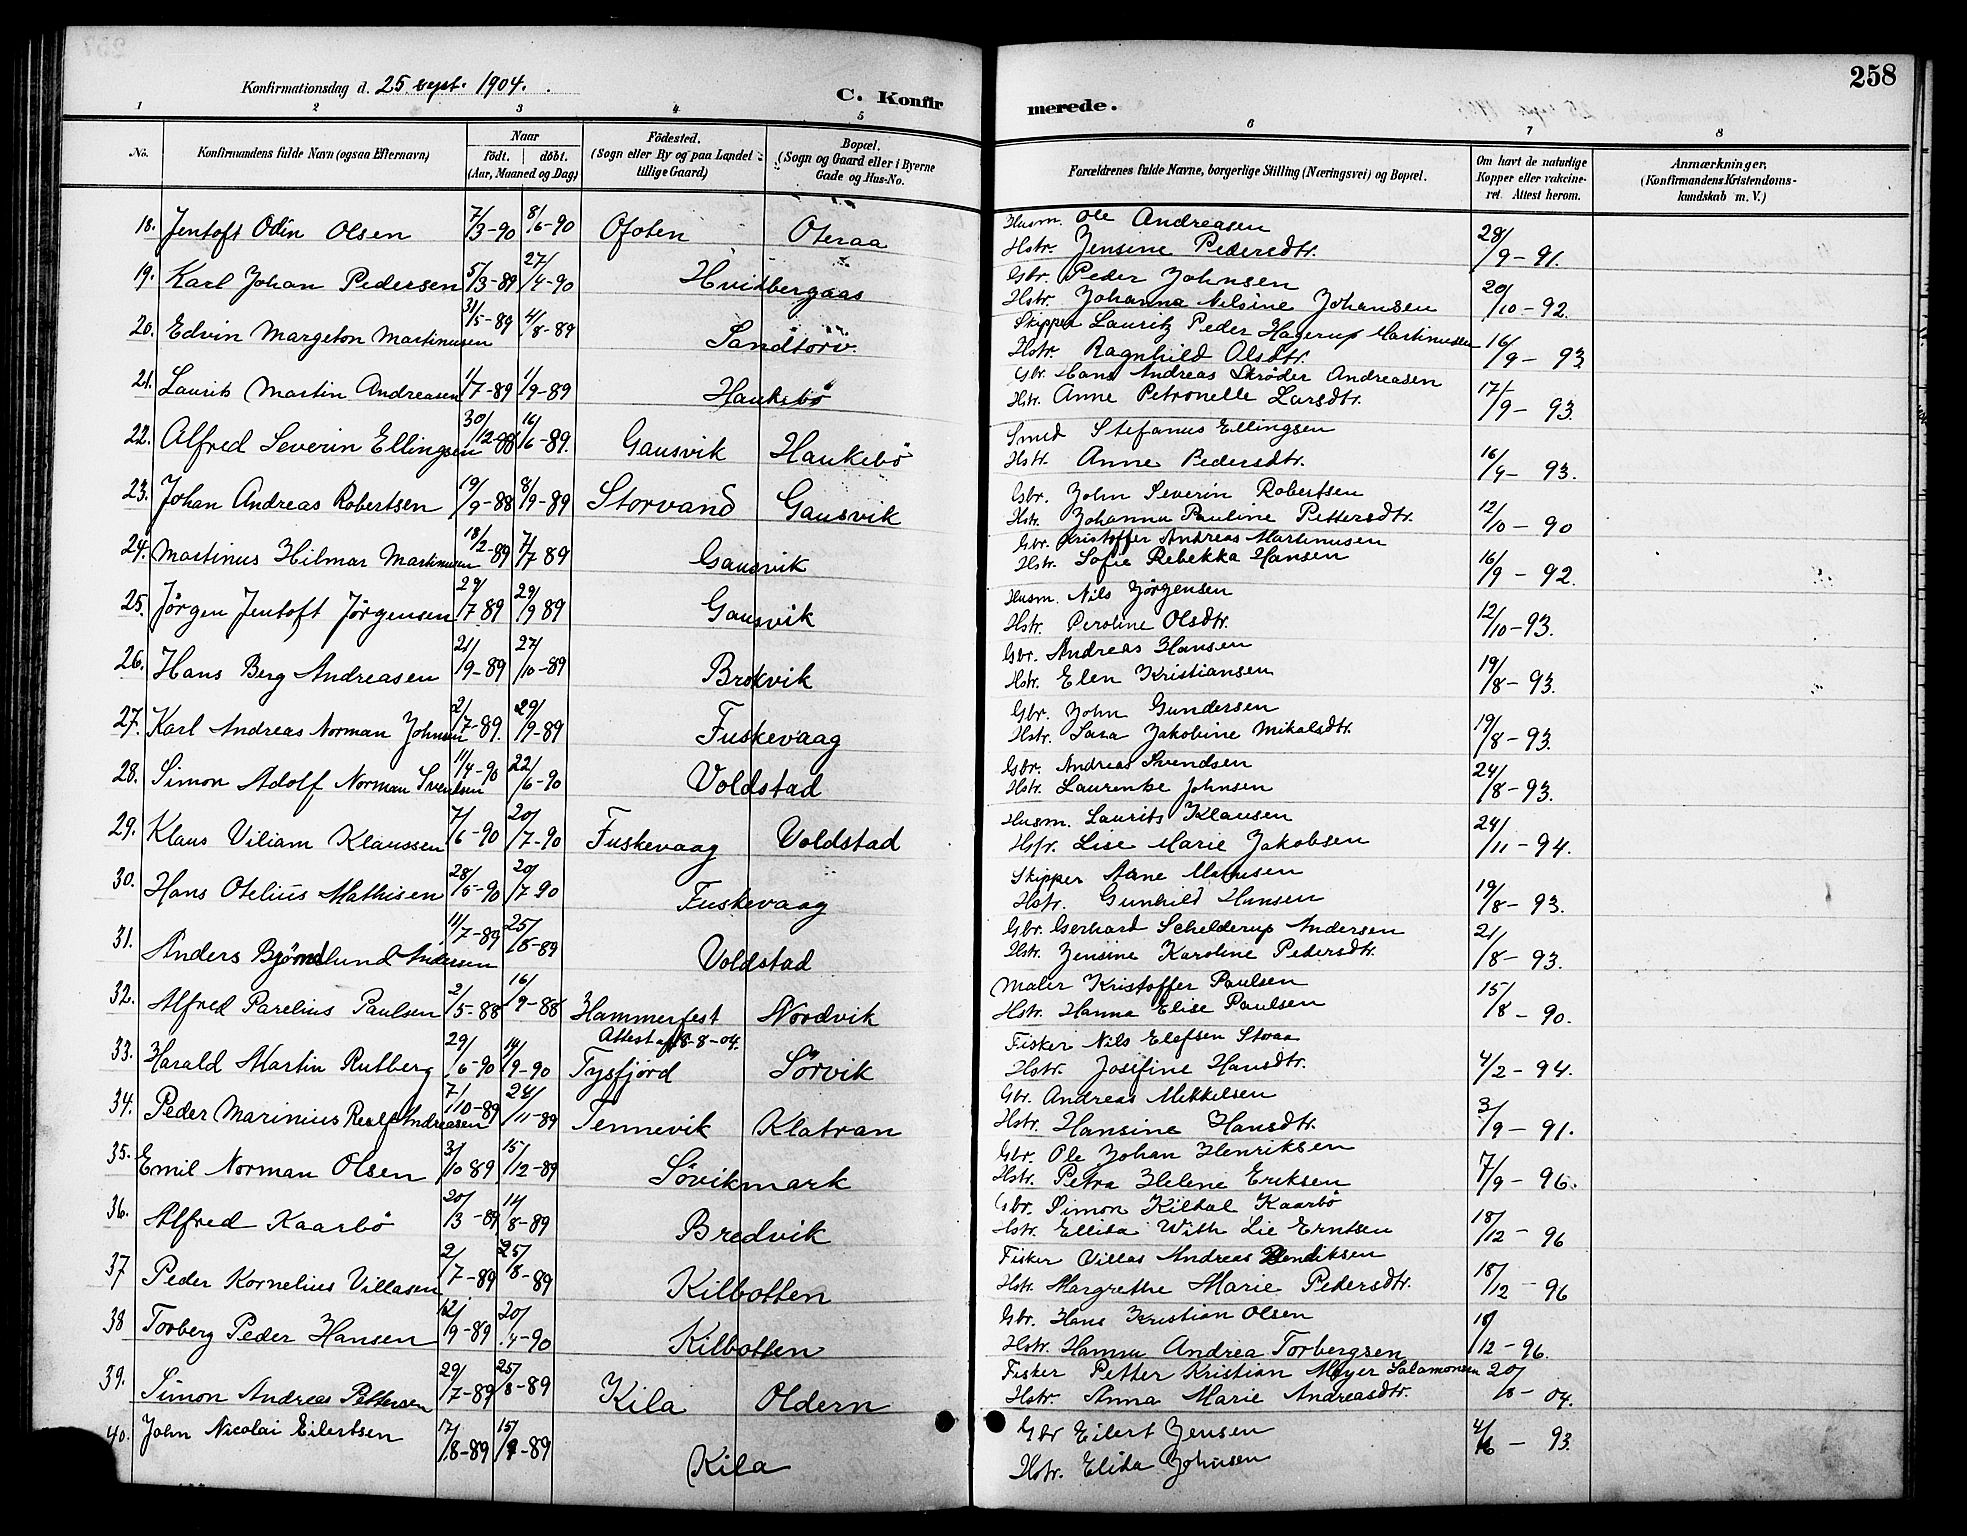 258
Konfirmationsdag d. 25 sept. 1904.
C. Konfirmerede.
1 2 3 4 5 6 7 8
No.
Konfirmandens fulde Navn (ogsaa Efternavn)
Naar
födt. | döbt.
(Aar, Maaned og Dag)
Födested.
(Sogn eller By og paa Landet
tillige Gaard)
Bopæl.
(Sogn og Gaard eller i Byerne
Gade og Hus-No.
Forældrenes fulde Navne, borgerlige Stilling (Næringsvei) og Bopæl.
Om havt de naturlige
Kopper eller vakcine-
ret. Attest herom.
Anmærkninger.
(Konfirmandens Kristendoms-
kundskab m. V.)
18. Jentoft Odin Olsen 7/3-90 8/6-90 Ofoten Oteraa Husm. Ole Andreasen
Hstr. Jensine Pedersdtr. 28/9-91.
19. Karl Johan Pedersen 5/3-89 27/4-90 Hvidbergaas Gbr. Peder Johnsen
Hstr. Johanna Nilsine Johansen 20/10-92.
20. Edvin Margeton Martinusen 31/5-89 4/8-89 Sandtorv. Skipper Lauritz Peder Hagerup Martinussen
Hstr. Ragnhild Olsdtr. 16/9-93
21. Laurits Martin Andreasen 1/7-89 1/9-89 Haukebö Gbr. Hans Andreas Skrøder Andreasen
Hstr. Anne Petronelle Larsdtr. 17/9-93.
22. Alfred Severin Ellingsen 30/12-88 16/6-89. Gausvik Haukebö Smed Stefanus Ellingsen
Hstr. Anne Pedersdtr. 16/9-93.
23. Johan Andreas Robertsen 19/9-88 8/9-89 Storvand Gausvik Gbr. John Severin Robertsen
Hstr. Johanna Pauline Pettersdtr. 12/10-90
24. Martinus Hilmar Martinusen 18/2-89 7/7 89 Gausvik Gbr. Kristoffer Andreas Martinusen
Hstr. Sofie Rebekka Hansen 16/9-92.
25. Jörgen Jentoft Jörgensen 29/7 89 29/9 89 Gausvik Husm. Nils Jörgensen
Hstr. Peroline Olsdtr. 12/10-93.
26. Hans Berg Andreasen 21/9-89 27/10-89 Brokvik Gbr. Andreas Hansen
Hstr. Elen Kristiansen 19/8-93.
27. Karl Andreas Norman Johnsen 2/7-89. 29/9-89 Fuskevaag Gbr. John Gundersen
Hstr. Sara Jakobine Mikalsdtr. 19/8-93.
28. Simon Adolf Norman Svendsen 11/4-90 22/6-90 Voldstad Gbr. Andreas Svendsen
Hstr. Laurenke Johnsen 24/8-93.
29. Klaus Viliam Klaussen 7/6-90 20/7-90 Fuskevaag Voldstad Husm. Laurits Klausen
Hstr. Lise Marie Jakobsen 24/11-94.
30. Hans Otelius Mathisen 28/5-90 20/7-90 Fuskevaag Skipper Arne Mathisen
Hstr. Gunhild Hansen 19/8-93.
31. Anders Björnslund Andersen 11/7-89 25/8-89 Voldstad Gbr. Gerhard Schelderup Andersen
Hstr. Jensine Karoline Pedersdtr. 21/8-93.
32. Alfred Parelius Paulsen 2/5-88 16/9-88 Hammerfest Nordvik Maler Kristoffer Paulsen
Attest af 18-8-04.
Hstr. Hanna Elise Paulsen 15/8-90.
33. Harald Martin Rutberg 29/6-90 14/9-90 Tysfjord Sörvik Fisker Nils Elefsen Storaa
Hstr. Josefine Hansdtr. 4/2-94.
34. Peder Marinius Realf Andreasen 7/10-89 24/11-89 Tennevik Klatran Gbr. Andreas Mikkelsen
Hstr. Hansine Hansdtr. 3/9-91.
35. Emil Norman Olsen 3/10 89 15/12-89 Sövikmark Gbr. Ole Johan Henriksen
Hstr. Petra Helene Eriksen 7/9-96.
36. Alfred Kaarbö 20/3-89 14/8-89 Bredvik Gbr. Simon Kildal Kaarbö
Hstr. Ellida With Lie Erntsen 18/12-96
37 Peder Kornelius Villasen 2/7-89 25/8-89 Kilbotten Fisker Villas Andreas Bendiksen
Hstr. Margrethe Marie Pedersdtr. 18/12-96
38 Torberg Peder Hansen 12/9-89 20/4-90 Kilbotten Gbr. Hans Kristian Olsen
Hstr. Hanna Andrea Torbergsen 18/12-96.
39. Simon Andreas Pettersen 29/7-89 25/8-89 Kila Oldern Fisker Petter Kristian Meyer Salamonsen
Hstr. Anna Marie Andreasdtr. 20/8-04.
40. John Nicolai Eilertsen 17/8-89 15/9-89 Kila Gbr Eilert Jensen
Hstr. Elida Johnsen 4/6-93.